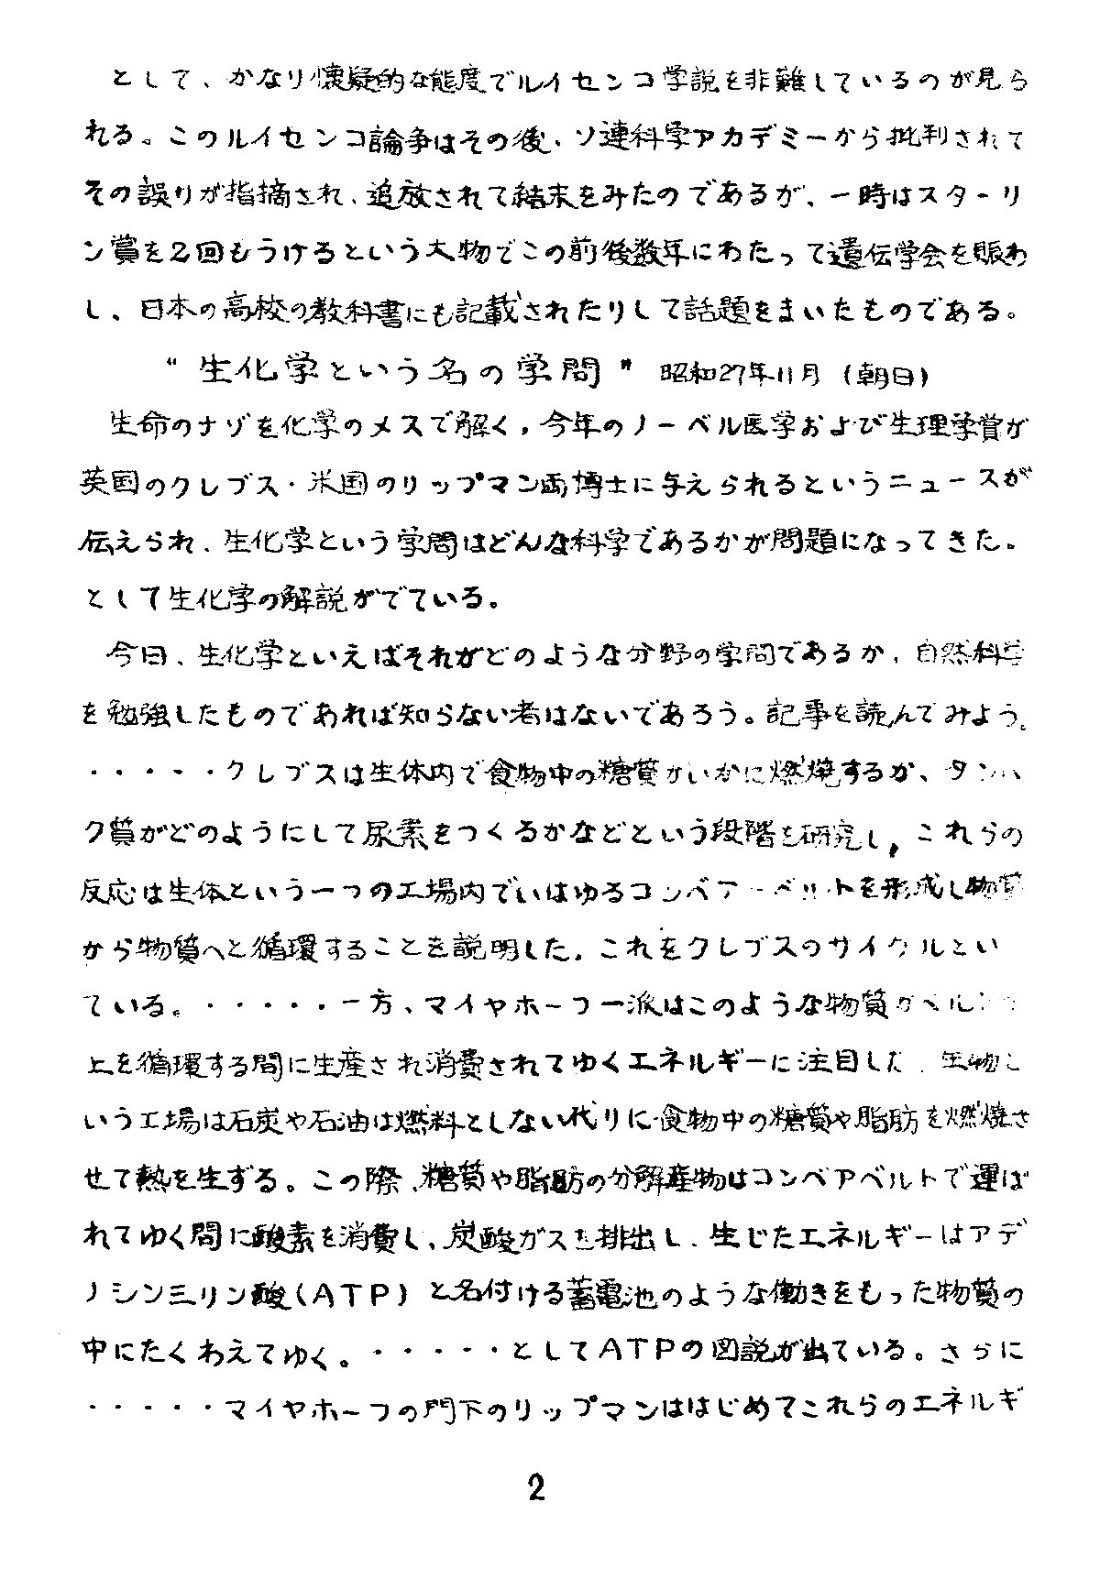 として、かなり懐疑的な態度でルイセンコ学説を非難しているのが見ら
れる。このルイセンコ論争はその後、ソ連科学アカデミーから批判されて
その誤りが指摘され、追放されて結末をみたのであるが、一時はスターリ
ン賞を2回もうけるという大物でこの前後数年にわたって遺伝学会を賑わ
し、日本の高校の教科書にも記載されたりして話題をまいたものである。
“生化学という名の学問” 昭和27年11月(朝日)
生命のナゾを化学のメスで解く，今年のノーベル医学および生理学賞が
英国のクレブス・米国のリップマン両博士に与えられるというニュースが
伝えられ、生化学という学問はどんな科学であるかが問題になってきた。
として生化学の解説がでている。
今日、生化学といえばそれがどのような分野の学問であるか，自然科学
を勉強したものであれば知らない者はないであろう。記事を読んでみよう。
・・・・・クレブスは生体内で食物中の糖質がいかに燃焼するか、タンパ
ク質がどのようにして尿素をつくるかなどという段階を研究し，これらの
反応は生体という一つの工場内でいはゆるコンベアーベルトを形成し物質
から物質へと循環することを説明した．これをクレブスのサイクルとい
ている。・・・・・一方、マイヤホーフ一派はこのような物質がベルトの
上を循環する間に生産され消費されてゆくエネルギーに注目した 生物と
いう工場は石炭や石油は燃料としない代りに食物中の糖質や脂肪を燃焼さ
せて熱を生ずる。この際、糖質や脂肪の分解産物はコンベアベルトで運ば
れてゆく間に酸素を消費し、炭酸ガスを排出し、生じたエネルギーはアデ
ノシン三リン酸(ATP)と名付ける蓄電池のような働きをもった物質の
中にたくわえてゆく。・・・・・としてATPの図説が出ている。さらに
・・・・・マイヤホーフの門下のリップマンははじめてこれらのエネルギ
2